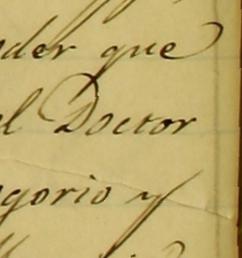 der que
el Doctor
gorio y